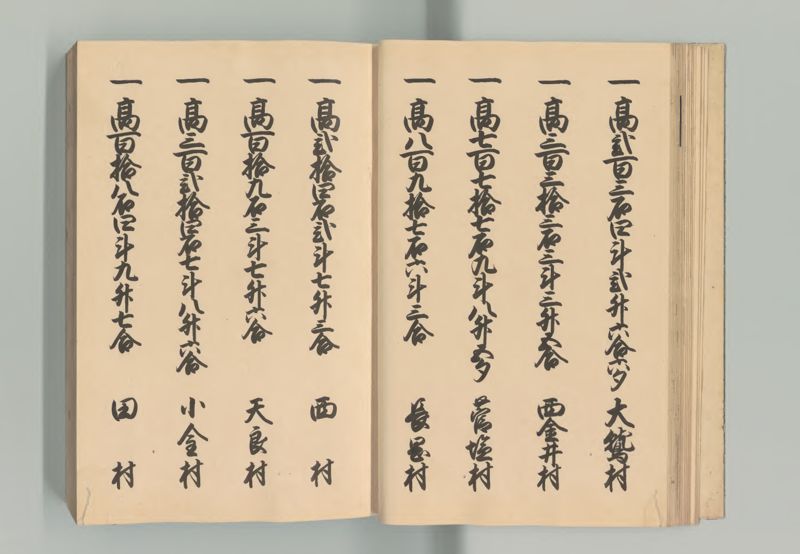 一高弐百三石四斗弐升六合六夕大鷲村
一高三百三拾三石三斗三升五合西金井村
一高七百七拾七石九斗八升五夕菅塩村
一高八百九拾七石六斗三合長岡村
一高弐拾四石弐斗七升三合西村
一高百拾九石三斗七升六合天良村
一高三百弐拾四石七斗八升六合小金村
一高百拾八石四斗九升七合田村